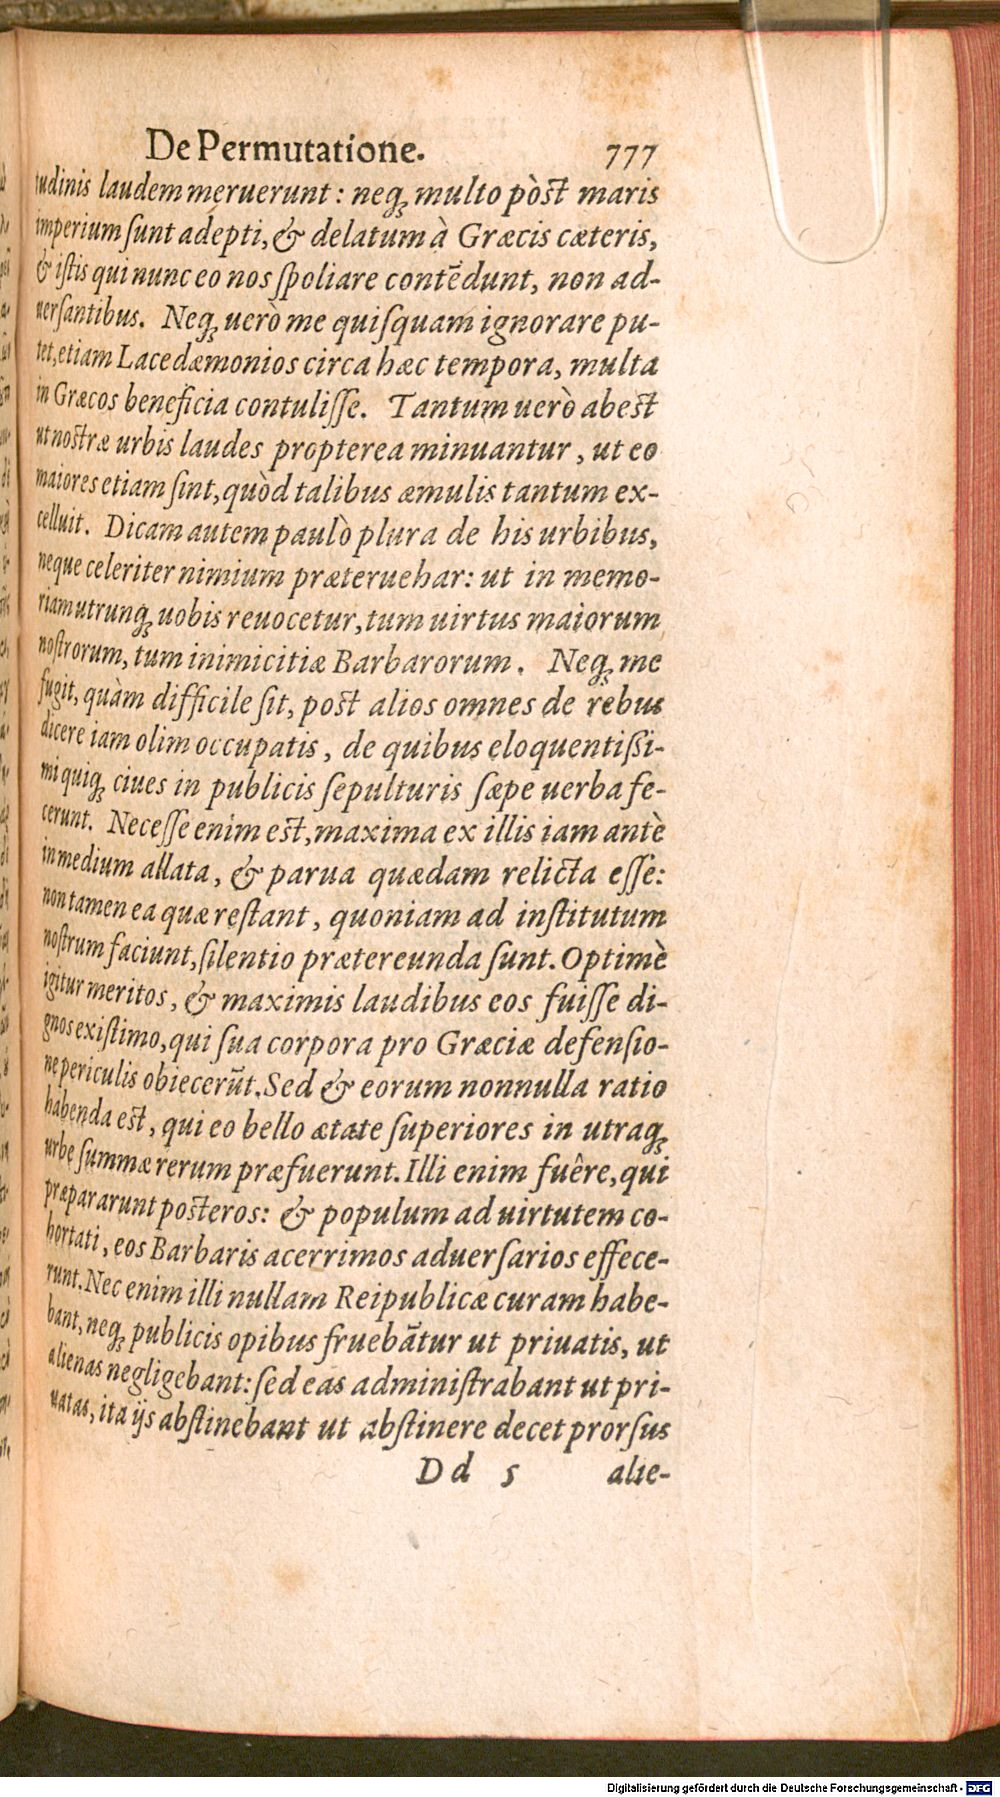 De Permutatione. 777
tudinis laudem meruerunt: neqꝫ multo pòst maris
imperium sunt adepti, & delatum à Græcis cæteris,
& istis qui nunc eo nos spoliare contēdunt, non ad-
uersantibus. Neqꝫ uerò me quisquam ignorare pu-
tet, etiam Lacedæmonios circa hæc tempora, multa
in Græcos beneficia contulisse. Tantum uerò abest
ut nostræ urbis laudes propterea minuantur, ut eo
maiores etiam sint, quòd talibus æmulis tantum ex-
celluit. Dicam autem paulò plura de his urbibus,
neque celeriter nimium præteruehar: ut in memo-
riam utrunqꝫ uobis reuocetur, tum uirtus maiorum
nostrorum, tum inimicitiæ Barbarorum. Neqꝫ me
fugit, quàm difficile sit, post alios omnes de rebus
dicere iam olim occupatis, de quibus eloquentißi-
mi quiqꝫ ciues in publicis sepulturis sæpe uerba fe-
cerunt. Necesse enim est, maxima ex illis iam antè
in medium allata, & parua quædam relicta esse:
non tamen ea quæ restant, quoniam ad institutum
nostrum faciunt, silentio prætereunda sunt. Optimè
igitur meritos, & maximis laudibus eos fuisse di-
gnos existimo, qui sua corpora pro Græciæ defensio-
ne periculis obiecerūt. Sed & eorum nonnulla ratio
habenda est, qui eo bello ætate superiores in utraqꝫ
urbe summæ rerum præfuerunt. Illi enim fuêre, qui
præpararunt posteros: & populum ad uirtutem co-
hortati, eos Barbaris acerrimos aduersarios effece-
runt. Nec enim illi nullam Reipublicæ curam habe-
bant, neqꝫ publicis opibus fruebātur ut priuatis, ut
alienas negligebant: sed eas administrabant ut pri-
uatas, ita ijs abstinebant ut abstinere decet prorsus
Dd 5 alie-
Digitalisierung gefördert durch die Deutsche Forschungsgemeinschaft - DFG